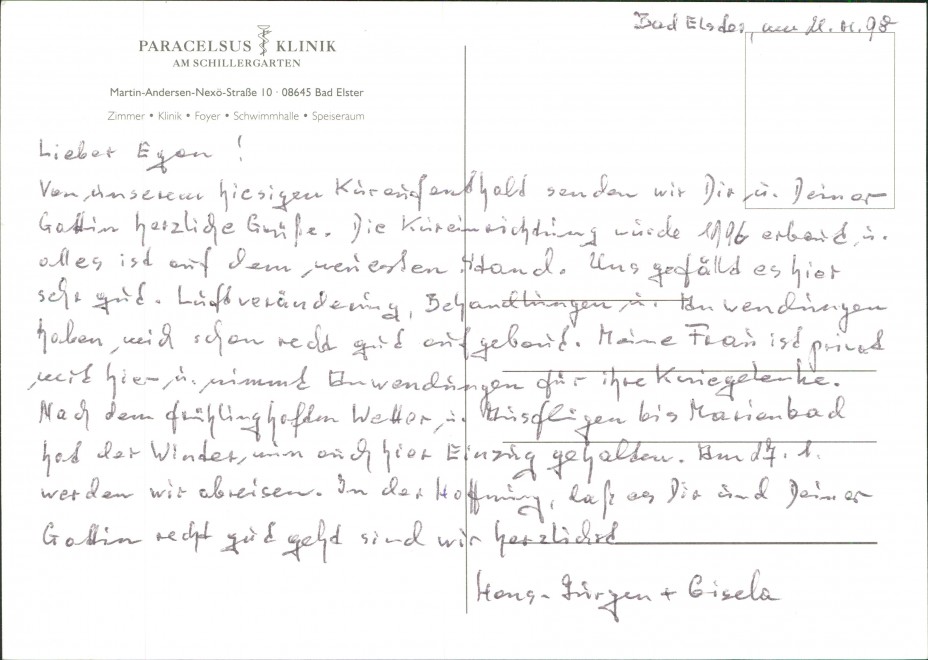 Bad Elster, am
PARACELSUS KLINIK
AM SCHILLERGARTEN
Martin-Andersen-Nexö-Straße 10 · 08645 Bad Elster
Zimmer • Klinik • Foyer • Schwimmhalle • Speiseraum
Lieber Egon !
Von unserem hiesigen Kuraufenthalt senden wir Dir u. Deiner
Gattin herzliche Grüße. Die Kureinrichtung wurde 1996 erbaut, u.
alles ist auf dem neuesten Stand. Uns gefällt es hier
sehr gut. Luftveränderung, Behandlungen u. Anwendungen
haben mich schon recht gut aufgebaut. Meine Frau ist privat
mit hier u. nimmt Anwendungen für ihre Kniegelenke.
Nach dem frühlinghaften Wetter u. Ausflügen bis Marienbad
hat der Winter nun auch hier Einzug gehalten. Am 27. 1.
werden wir abreisen. In der Hoffnung, daß es Dir und Deiner
Gattin recht gut geht sind wir herzlichst
Hans-Jürgen + Gisela